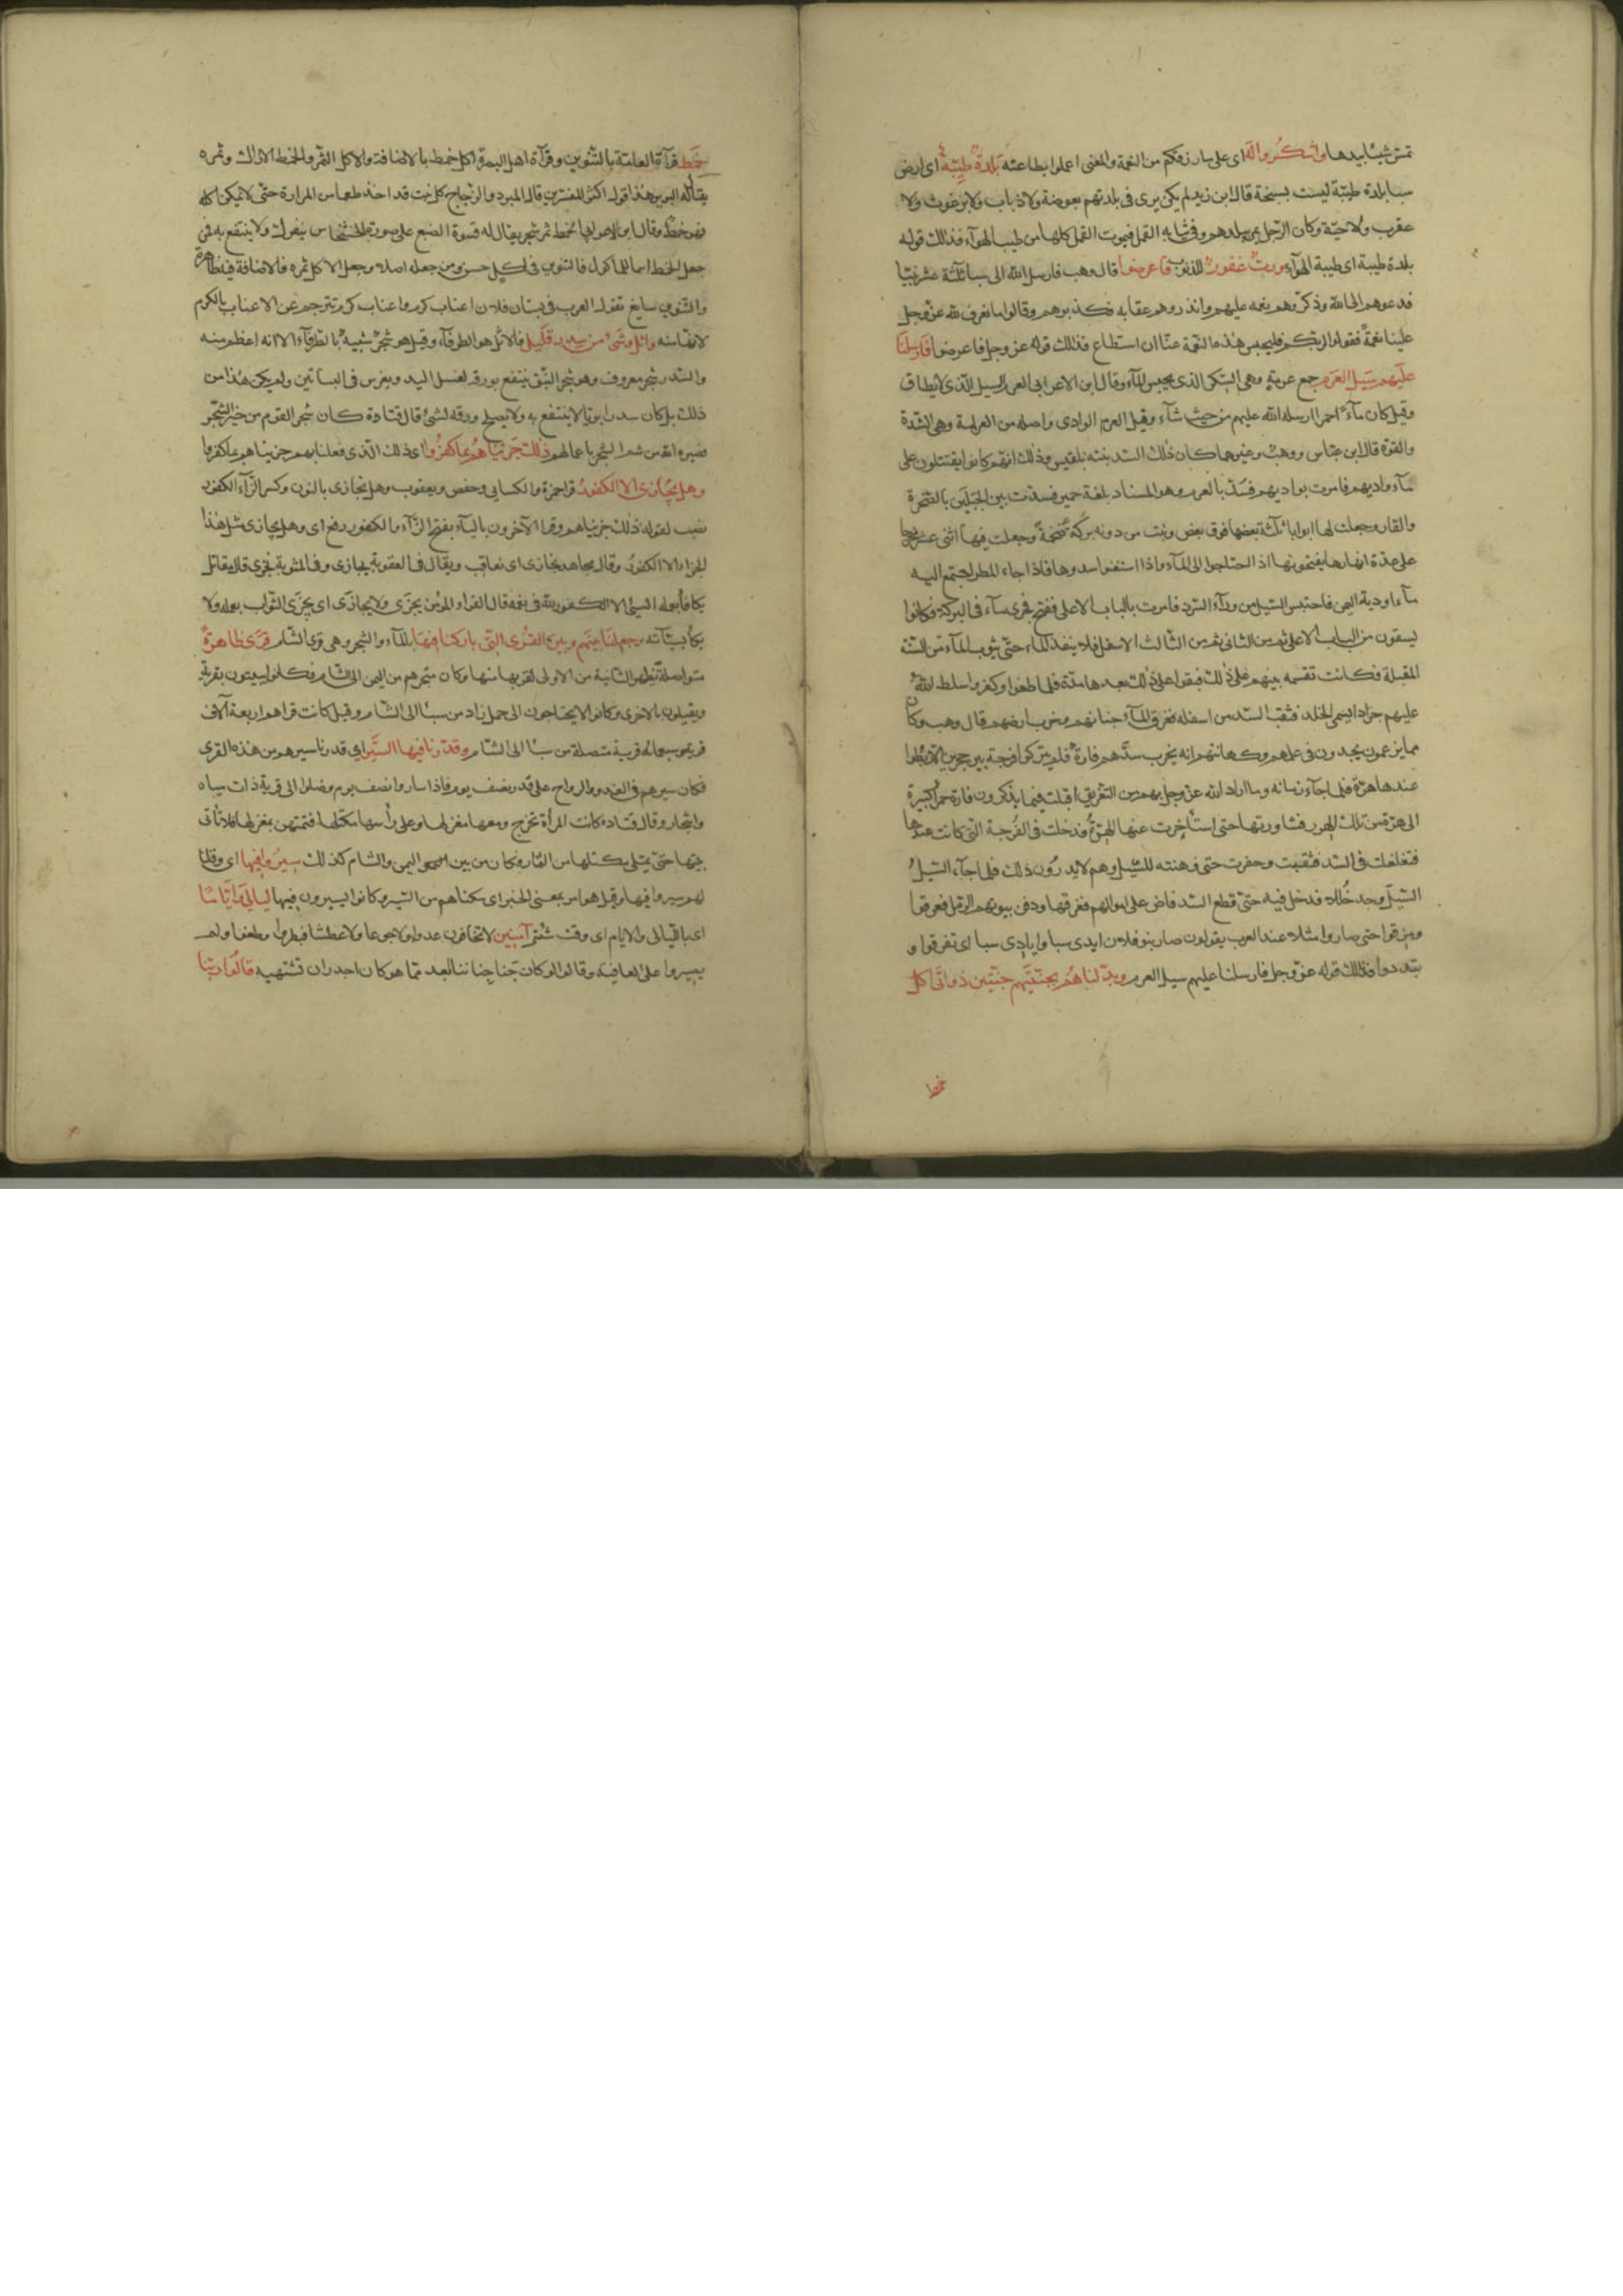 تمس شيئا بيدها واشكروا له اى على ما رزقكم من النعمة والمعنى اعملوا بطاعته بلدة طيبة اى ارض
سبا بلدة طيبة ليست بسبخة قال ابن زيد لم يكن يرى فى بلدتهم بعوضة ولا ذباب ولا برغوث ولا
عقرب ولا حية وكان الرجل يمر ببلدهم وفى ثيابه القمل فيموت القمل كلها من طيب الهوآء فذلك قوله
بلدة طيبة اى طيبة الهوآء ورب غفور للذنوب فاعرضوا قال وهب فارسل الله الى سبا ثلثة عشر نبيا
فدعوهم الى الله وذكروهم نعمه عليهم وانذروهم عقابه فكذبوهم وقالوا ما نعرف لله عز وجل
علينا نعمة فقولوا لربكم فليحبس هذه النعمة عنا ان استطاع فذلك قوله عز وجل فاعرضوا فارسلنا
عليهم سيل العرم جمع عرمة وهى السكر الذى يحبس المآء وقال ابن الاعرابى العرم السيل الذى لا يطاق
وقيل كان مآء احمر ارسله الله عليهم من حيث شآء وقيل العرم الوادى واصله من العرامة وهى الشدة
والقوة قال ابن عباس ووهب وغيرهما كان ذلك السد بنته بلقيس وذلك انهم كانوا يقتتلون على
مآء واديهم فامرت بواديهم فسد بالعرم وهو المسناد بلغة حمير فسدت بين الجبلين بالصخرة
والقار وجعلت لها ابوابا ثلثة بعضها فوق بعض وبنت من دونه بركة ضخمة وجعلت فيها اثنى عشر مخرجا
على عدة انهارها يفتحونها اذا احتاجوا الى المآء واذا استغنوا سدوها فاذا جاء المطر اجتمع اليه
مآء اودية اليمن فاحتبس السيل من ورآء السد فامرت بالباب الاعلى ففتح فجرى مآء فى البركة فكانوا
يسقون من الباب الاعلى ثم من الثانى ثم من الثالث الاسفل فلا ينفذ المآء حتى يثوب المآء من السنة
المقبلة فكانت تقسمه بينهم على ذلك فبقوا على ذلك بعدها مدة فلما طغوا وكفروا سلط الله
عليهم جرادا يسمى الخلد فثقب السد من اسفله فغرق المآء جناتهم وخرب ارضهم قال وهب وكان
مما يزعمون يجدون فى علمهم وكهانتهم انه يخرب سدهم فارة فلم يتركوا فرجة بين حجرين الا ربطوا
عندها هرة فلما جآء زمانه وما اراد الله عز وجل بهم من التغريق اقبلت فيما يذكرون فارة حمرا كبيرة
الى هرة من تلك الهرر فشاورتها حتى استأخرت عنها الهرة فدخلت فى الفرجة التى كانت عندها
فتغلغلت فى السد فثقبت وحفرت حتى وهنته للسيل وهم لا يدرون ذلك فلما جآء السيل
السيل وجد خللا فدخل فيه حتى قطع السد فاض على اموالهم فغرقها ودفن بيوتهم الرمل فغرقوا
ومزقوا حتى صاروا مثلا عند العرب يقولون صار بنو فلان ايدى سبا وايادى سبا اى تفرقوا و
تبددوا فذلك قوله عز وجل فارسلنا عليهم سيل العرم وبدلناهم بجنتيهم جنتين ذواتى اكل
خمط
خمط قرآة العامة بالتنوين وقرآة اهل البصرة اكل خمط بالاضافة والاكل الثمر والخمط الاراك وثمره
يقال له البرير هذا قول اكثر المفسرين قال المبرد والزجاج كل نبت قد اخذ طعما من المرارة حتى لا يمكن اكله
فهو خمط وقال ابن الاعرابى الخمط ثمر شجر يقال له فسوة الضبع على صورة الخشخاش يتفرك ولا ينتفع به فمن
جعل الخمط اسما للماكول فالتنوين فى اكل حسن ومن جعله اصلا وجعل الاكل ثمره فالاضافة فيه ظاهرة
والتنوين سايغ تقول العرب فى بستان فلان اعناب كرم واعناب كرم يترجم عن الاعناب بالكرم
لانها منه واثل وشىء من سدر قليل فالاثل هو الطرفآء وقيل هو شجر شبيه بالطرفآء الا انه اعظم منه
والسدر شجر معروف وهو شجر النبق ينتفع بورقه لغسل اليد ويغرس فى البساتين ولم يكن هذا من
ذلك بل كان سدرا بريا لا ينتفع به ولا يصلح ورقه لشئ قال قتادة كان شجر القوم من خير الشجر
فصيره الله من شر الشجر باعمالهم ذلك جزيناهم بما كفروا اى ذلك الذى فعلنا بهم جزيناهم بما كفروا
وهل يجازى الا الكفور قرا حمزة والكسائى وحفص ويعقوب وهل نجازى بالنون وكسر الزآء الكفور
نصب لقوله ذلك جزيناهم وقرا الآخرون باليآء بفتح الزآء والكفور رفع اى وهل يجازى مثل هذا
الجزاء الا الكفور وقال مجاهد يجازى اى نعاقب ويقال فى العقوبة يجازى وفى المثوبة يجزى قال مقاتل
يكافأ بعمله السئ الا الكفور لله فى نعمه قال الفرا المؤمن يجزى ولا يجازى اى يجزى الثواب بعمله ولا
يكافأ بسيآته وجعلنا بينهم وبين القرى التى باركنا فيها بالمآء والشجر وهى قرى الشام قرى ظاهرة
متواصلة تظهر الثانية من الاولى لقربها منها وكان متجرهم من اليمن الى الشام فكانوا يبيتون بقرية
ويقيلون بالاخرى وكانوا لا يحتاجون الى حمل زاد من سبا الى الشام وقيل كانت قراهم اربعة آلاف
قرية وسبعمائة قرية متصلة من سبا الى الشام وقدرنا فيها السير اى قدرنا سيرهم من هذه القرى
فكان سيرهم فى الغدو والرواح على قدر نصف يوم فاذا ساروا نصف يوم وصلوا الى قرية ذات مياه
واشجار وقال قتادة كانت المرأة تخرج ومعها مغزلها وعلى رأسها مكتلها فتمتهن بمغزلها فلا تأتى
بيتها حتى يمتلى مكتلها من الثمار وكان من بين اليمن والشام كذلك سيروا فيها اى وقلنا
لهم سيروا فيها وقيل هو امر بمعنى الخبر اى مكناهم من السير وكانوا يسيرون فيها ليالى واياما
اى بالليالى والايام اى وقت شئتم آمنين لا تخافون عدوا ولا جوعا ولا عطشا فبطروا وطغوا ولم
يصبروا على العافية وقالوا لو كان جنا جناتنا ابعد مما هو كان اجدر ان تشتهيه فقالوا ربنا